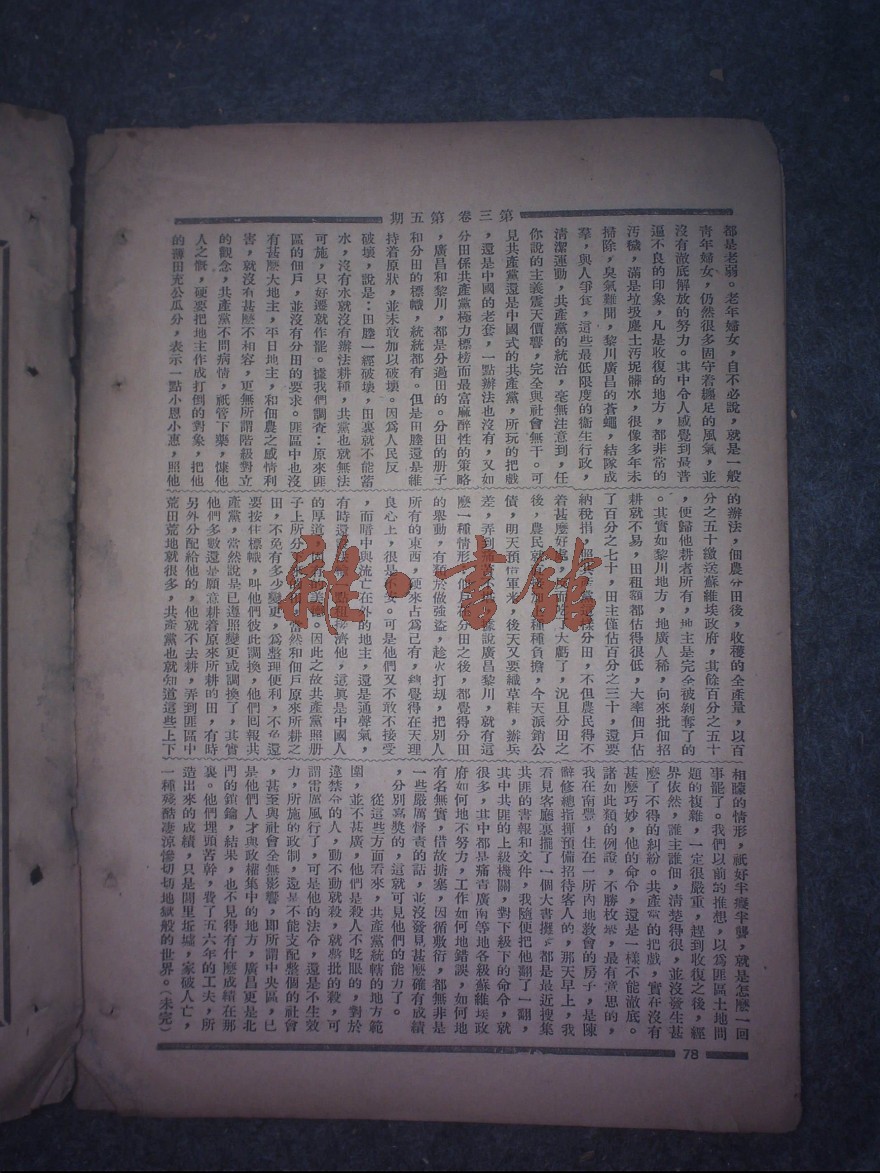 第三卷第五期
都是老弱。老年婦女，自不必說，就是一般
青年婦女，仍然很多固守着纏足的風氣，並
沒有澈底解放的努力。其中令人感覺到最普
遍不良的印象，凡是收復的地方，都非常的
汚穢，滿是垃圾塵土汚坭髒水，很像多年未
掃除，臭氣難聞，黎川廣昌的蒼蠅，結隊成
羣，與人爭食，這些最低限度的衞生行政，
清潔運動，共產黨的統治，毫無注意到，任
你說的主義震天價響，完全與社會無干。可
見共產黨還是中國式的共產黨，所玩的把戲
，還是中國的老套，一點辦法也沒有，又如
分田係共產黨極力標榜而最富麻醉性的策略
，廣昌和黎川，都是分過田的。分田的册子
和分田的標幟，統統都有。但是田塍還是維
持着原狀，並未敢加以破壞。因爲人民反
破壞，說是：田塍一經破壞，田裏就不能蓄
水，沒有水就沒有辦法耕種，共黨也就無法
可施，只好遷就作罷。據我們調查：原來匪
區的佃戶，並沒有分田的要求。匪區中也沒
有甚麽大地主，平日地主，和佃農之感情利
害，就沒有甚麽不相容，更無所謂階級對立
的觀念，共產黨不問病情，祇管下藥，慷他
人之慨，硬要把地主作成打倒的對象，把他
的薄田充公瓜分，表示一點小恩小惠，照他
的辦法，佃農分田後，收穫的全產量，以百
分之五十繳送蘇維埃政府，其餘百分之五十
，便歸他耕者所有，地主是完全被剝奪了的
。其實如黎川地方，地廣人稀，向來批佃招
耕就不易，田租額都佔得很低，大率佃戶佔
了百分之七十，田主僅佔百分之三十，還要
納稅捐，樣分田，不但農民得不
着甚麽好處，大虧了，況且分田之
後，農民就種種負擔，今天派銷公
債，明天預借軍米，後天又要織草鞋，辦兵
差，弄到說廣昌黎川，就有這
麽一種情形，他分田之後，都覺得分田
的舉動，有類於做強盜，趁火打刼，把別人
所有的東西，硬來占爲已有，總覺得在天理
良心上，很是不安。可是他們又不敢不接受
，而暗中與流亡在外的地主，還是通聲氣，
有時還接濟他，這眞是中國人
的厚道，美德。因此之故共產黨照册
子上所分當然和佃戶原來所耕之
田，不免有多少變更，爲整理便利，不免還
要按什標幟，叫他們彼此調換，他們囘報共
產黨，當然說是已遵照變更或調換了，其實
他們多數還是願意耕着原來所耕的田，有時
另外分配給他的，他就不去耕，弄到匪區中
荒田荒地就很多，共產黨也就知道這些上下
相矇的情形，祇好半癡半聾，就是怎麽一囘
事罷了。我們以前的推想，以爲匪區土地問
題的複雜，一定很嚴重，趕到收復之後，經
界依然，誰主誰佃，清楚得很，並沒發生甚
麽了不得的糾紛。共產黨的把戲，實在沒有
甚麽巧妙，他的命令，還是一樣不能澈底。
諸如此類的例證，不勝枚舉，最有意思的，
我在南豐，住在一所內地敎會的房子，是陳
辭修總指揮預備招待客人的，那天早上，我
看見客廳裏擺了一個大書攤，都是最近搜集
共匪的書報和文件，我隨便把他翻了一翻，
其中共匪的上級機關，對下級下的命令，就
很多，其中都是痛責廣南等地各級蘇維埃政
府如何地不努力，工作如何地錯誤，如何地
有名無實，借故搪塞，因循敷衍，都無非是
一些嚴厲督責的話，並沒發見甚麽確有成績
，分別嘉奬的，這就可見他們的能力了。
從這些方面看來，共產黨統轄的地方範
圍，並不甚廣，他們是殺人不眨眼的，對於
違禁令的人，動不動就殺，就整批的殺，可
謂雷厲風行了，可是他的法令，還是不生效
力，所施的政制，還是不能支配整個的社會
，甚至與社會全無影響，即所謂中央區，已
是他們人才與政權集中的地方，廣昌更是北
門的鎖鑰，結果，也不見得有什麽成績在那
裏。他們埋頭苦幹，費了五六年的工夫，所
造出來的成績，只是閭里坵墟，家破人亡，
一種殘酷凄涼慘切切地獄般的世界。（未完）
78
雅·書館